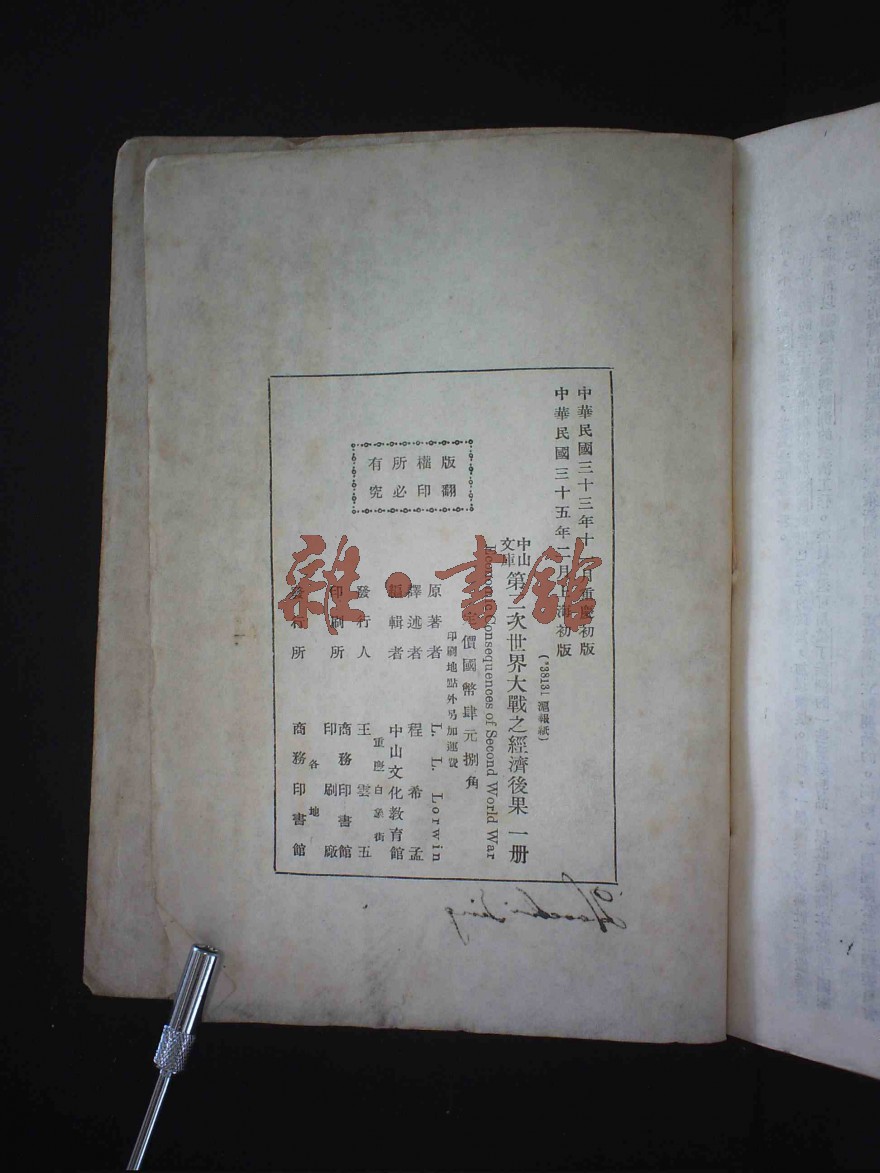 中華民國三十三年十一月重慶初版
中華民國三十五年二月上海初版
(*38131 滬報紙)
中山文庫 第二次世界大戰之經濟後果 一册
Economic Consequences of Second World War
定價國幣肆元捌角
印刷地點外另加運費
原著者 L. L. Lorwin
譯述者 程希孟
編輯者 中山文化教育館
發行人 王雲五
重慶白象街
印刷所 商務印書館印刷廠
發行所 商務印書館
各地
版權所有
翻印必究
雜·書館